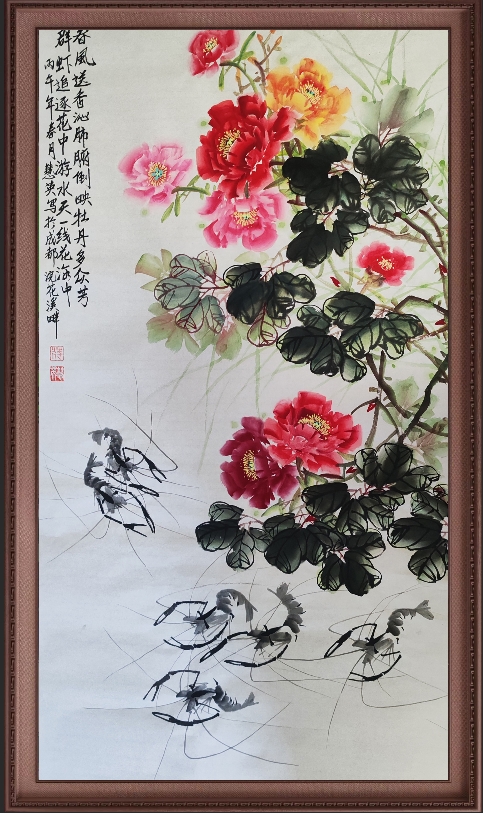 春風送香沁肺腑倒映牡丹多众芳
群虾追逐花中游水天一线花海中
丙午年春月慧英写於成都浣花溪畔